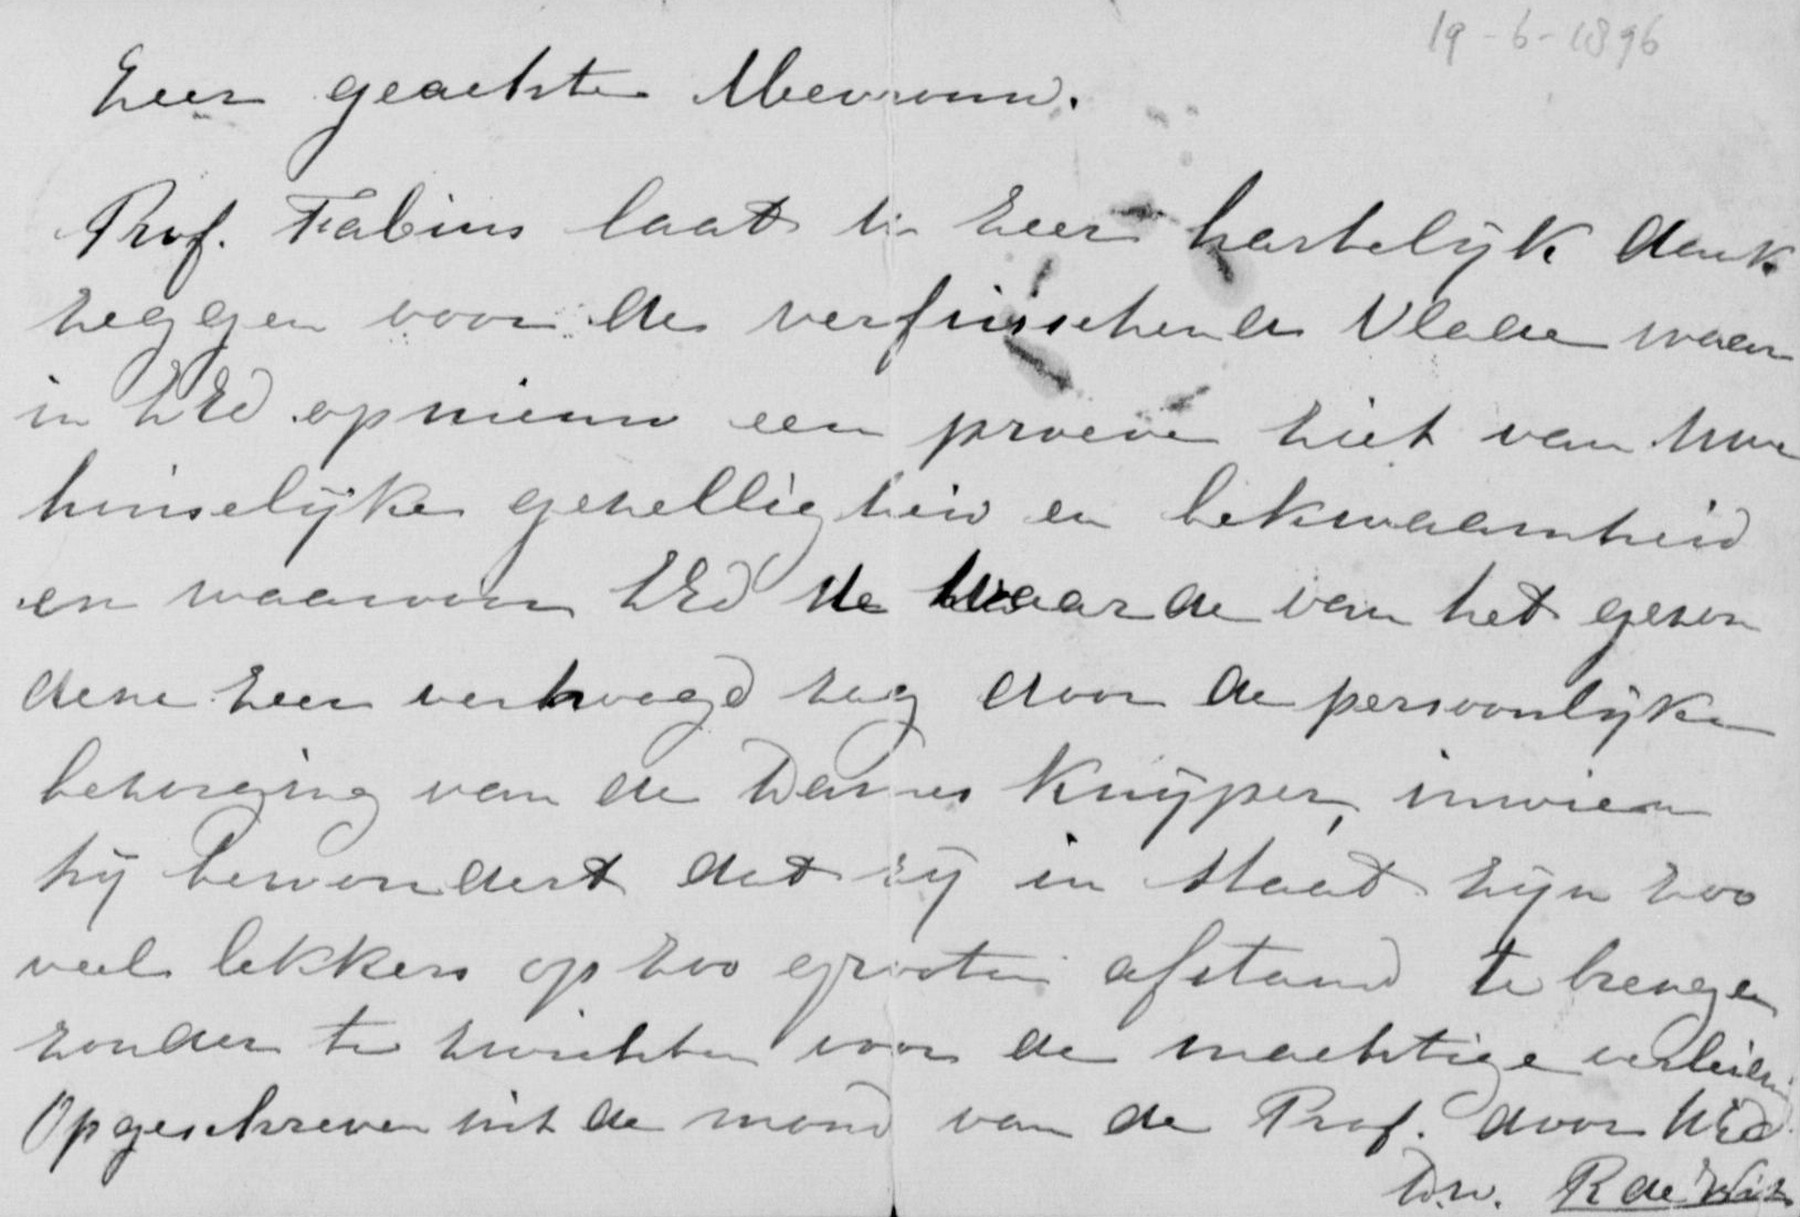 19-6-1896
Zeer geachte Mevrouw.
Prof. Fabius laat U zeer hartelijk dank
zeggen voor de verfrisschende Vlade waar
in ZEd opnieuw een proeve ziet van Uwe
huiselijke gezelligheid en bekwaamheid
en waarvan ZEd de waarde van het gezon
dene zeer verhoogd zag door de persoonlijke
bezorging van de Dames Kuyper, in wien
hij bewondert dat zij in staat zijn zoo
veel lekkers op zoo grooten afstand te brengen
zonder te zwichten voor de machtige verleiding
Opgeschreven uit de mond van de Prof. door UEd
Dw. R de Wit